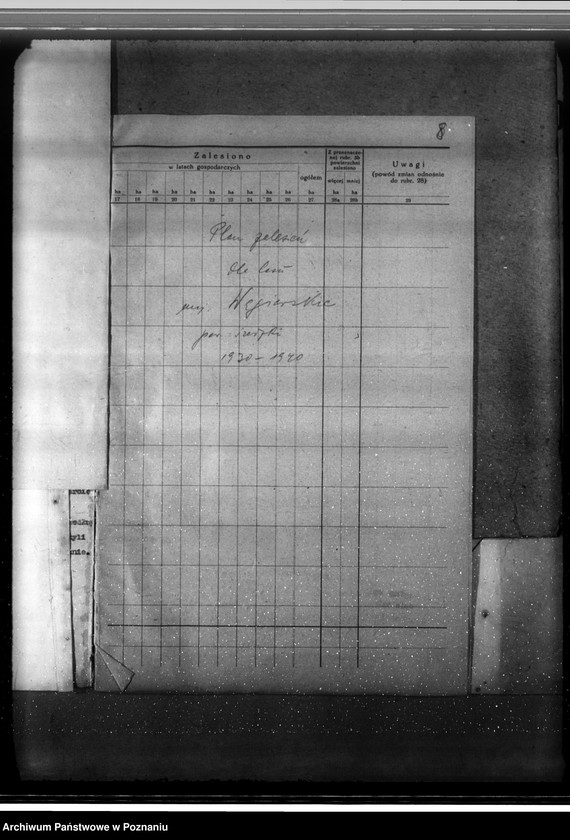 8
Zalesiono
w latach gospodarczych
ogółem
Z przeznaczo-
nej rubr. 2b
powierzchni
zalesiono
więcej mniej
Uwagi
(powód zmian odnośnie
do rubr. 28)
ha ha ha ha ha ha ha ha ha ha ha ha ha
17 18 19 20 21 22 23 24 25 26 27 28a 28b 29
Plan zalesień
dla lasu
maj. Węgierskie
pow. średzki
1930-1940
yli
nie.
Archiwum Państwowe w Poznaniu